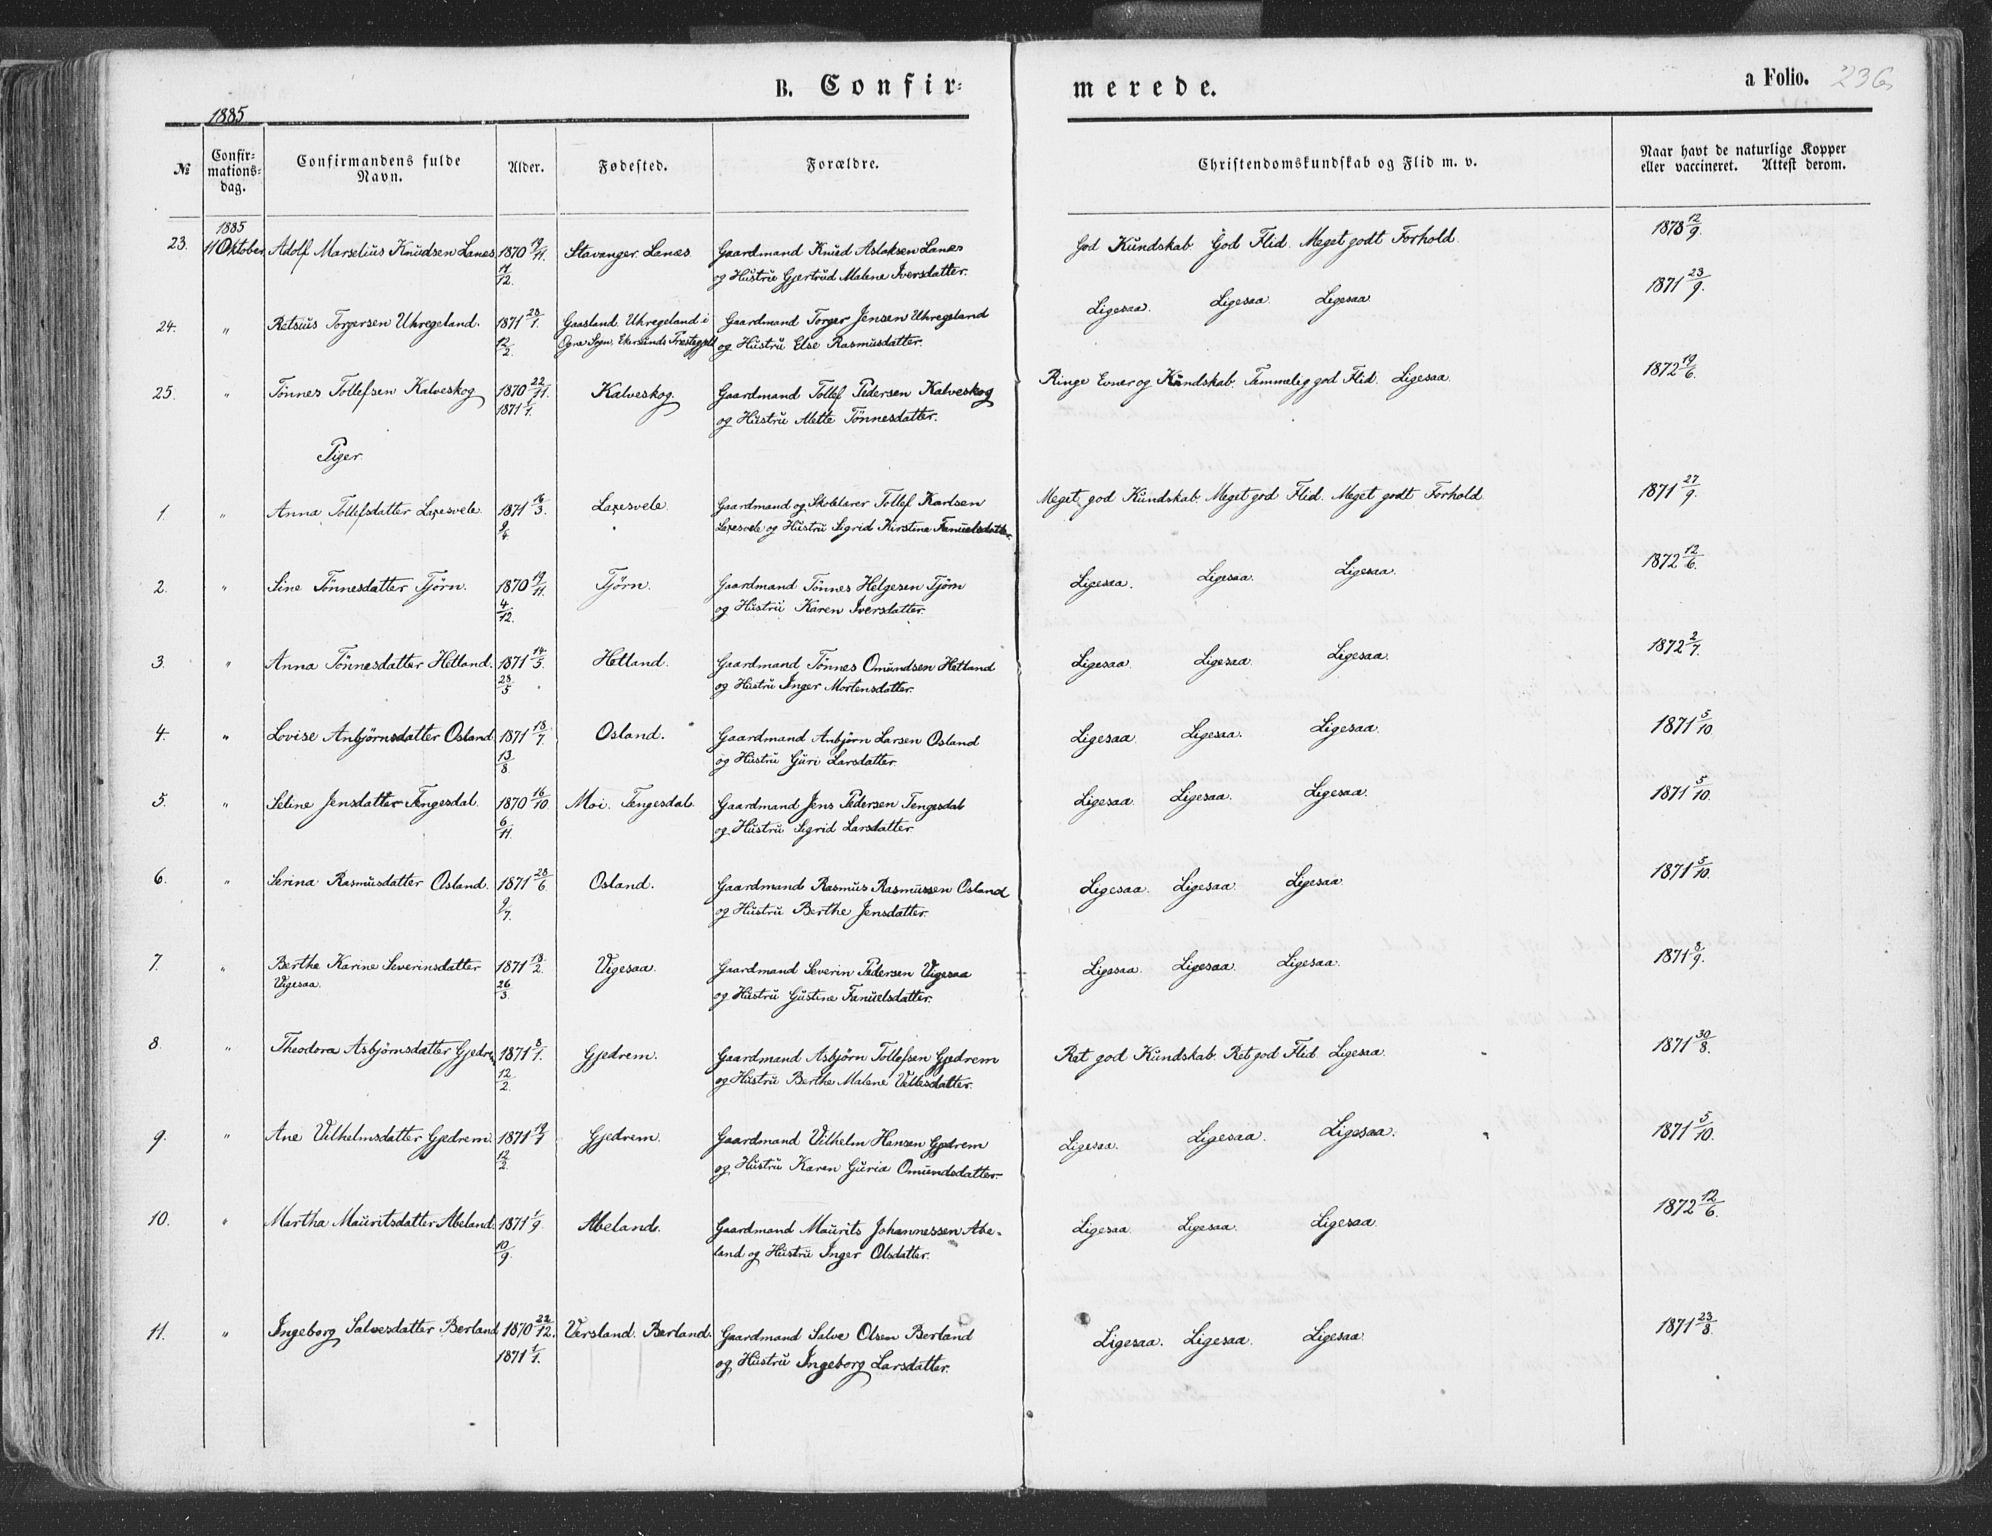 B. Confirmerede.
a Folio. 236
1885
№ Confirmationsdag. Confirmandens fulde Navn. Alder. Fødested. Forældre. Christendomskundskab og Flid m. v. Naar havt de naturlige Kopper eller vaccineret. Attest derom.
1885
23. 11 Oktober Adolf Marselius Knudsen Lanes 1870 19/11. Stavanger. Lanes Gaardmand Knud Aslaksen Lanes God Kundskab. God Flid. Meget godt Forhold. 1878 12/9.
og Hustru Gjertrud Malene Iversdatter.
24. " Retsius Torgersen Uhregeland. 1871 28/1. Gaasland. Uhregeland i Gaardmand Torger Jensen Uhregeland Ligesaa. Ligesaa. Ligesaa 1871 23/9.
12/2. Ogne Sogn, Ekersunds Prestegjeld og Hustru Else Rasmusdatter.
25. " Tønnes Tollefsen Kalveskog 1870 22/11. Kalveskog. Gaardmand Tollef Pedersen Kalveskog Ringe Evner og Kundskab. Temmelig god Flid. Ligesaa. 1872 19/6.
1871 1/1. og Hustru Alette Tønnesdatter.
Piger.
1. " Anna Tollefsdatter Laxesvele 1871 16/3. Laxesvele. Gaardmand og Skolelærer Tollef Karlsen Meget god Kundskab. Meget god Flid. Meget godt Forhold. 1871 27/9.
9/4. Laxesvele og Hustru Sigrid Kirstine Fanuelsdatter.
2. " Sine Tønnesdatter Tjørn. 1870 19/11. Tjørn. Gaardmand Tønnes Helgesen Tjørn Ligesaa. Ligesaa. Ligesaa. 1872 12/6.
4/12. og Hustru Karen Iversdatter.
3. " Anna Tønnesdatter Hetland. 1871 14/5. Hetland. Gaardmand Tønnes Omundsen Hetland Ligesaa. Ligesaa. Ligesaa. 1872 2/7.
28/5 og Hustru Inger Mortensdatter.
4. " Lovise Anbjørnsdatter Osland 1871 18/7. Osland. Gaardmand Anbjørn Larsen Osland Ligesaa. Ligesaa. Ligesaa. 1871 5/10.
13/8. og Hustru Guri Larsdatter.
5. " Seline Jensdatter Tengesdal. 1870 16/10 Moi. Tengesdal. Gaardmand Jens Pedersen Tengesdal Ligesaa. Ligesaa. Ligesaa. 1871 5/10.
6/11. og Hustru Sigrid Larsdatter.
6. " Serina Rasmusdatter Osland. 1871 28/6 Osland. Gaardmand Rasmus Rasmussen Osland Ligesaa. Ligesaa. Ligesaa. 1871 5/10.
9/7. og Hustru Berthe Jensdatter.
7. " Berthe Karine Severinsdatter 1871 18/2. Vigesaa. Gaardmand Severin Pedersen Vigesaa Ligesaa. Ligesaa. Ligesaa. 1871 8/9.
Vigesaa. 26/3. og Hustru Gustine Fanuelsdatter.
8. " Theodora Asbjørnsdatter Gjedrem 1871 8/1. Gjedrem. Gaardmand Asbjørn Tollefsen Gjedrem Ret god Kundskab. Ret god Flid. Ligesaa. 1871 30/8.
12/2. og Hustru Berthe Malene Vellesdatter.
9. " Ane Vilhelmsdatter Gjedrem. 1871 19/1 Gjedrem. Gaardmand Vilhelm Hansen Gjedrem Ligesaa. Ligesaa. Ligesaa. 1871 5/10.
12/2 og Hustru Karen Guria Omundsdatter.
10. " Martha Mauritsdatter Abeland. 1871 1/9. Abeland. Gaardmand Maurits Johannessen Abe- Ligesaa. Ligesaa. Ligesaa. 1872 12/6.
10/9. land og Hustru Inger Olsdatter.
11. " Ingeborg Salvesdatter Berland 1870 22/12. Versland. Berland. Gaardmand Salve Olsen Berland Ligesaa. Ligesaa. Ligesaa. 1871 23/8.
1871 1/1. og Hustru Ingeborg Larsdatter.